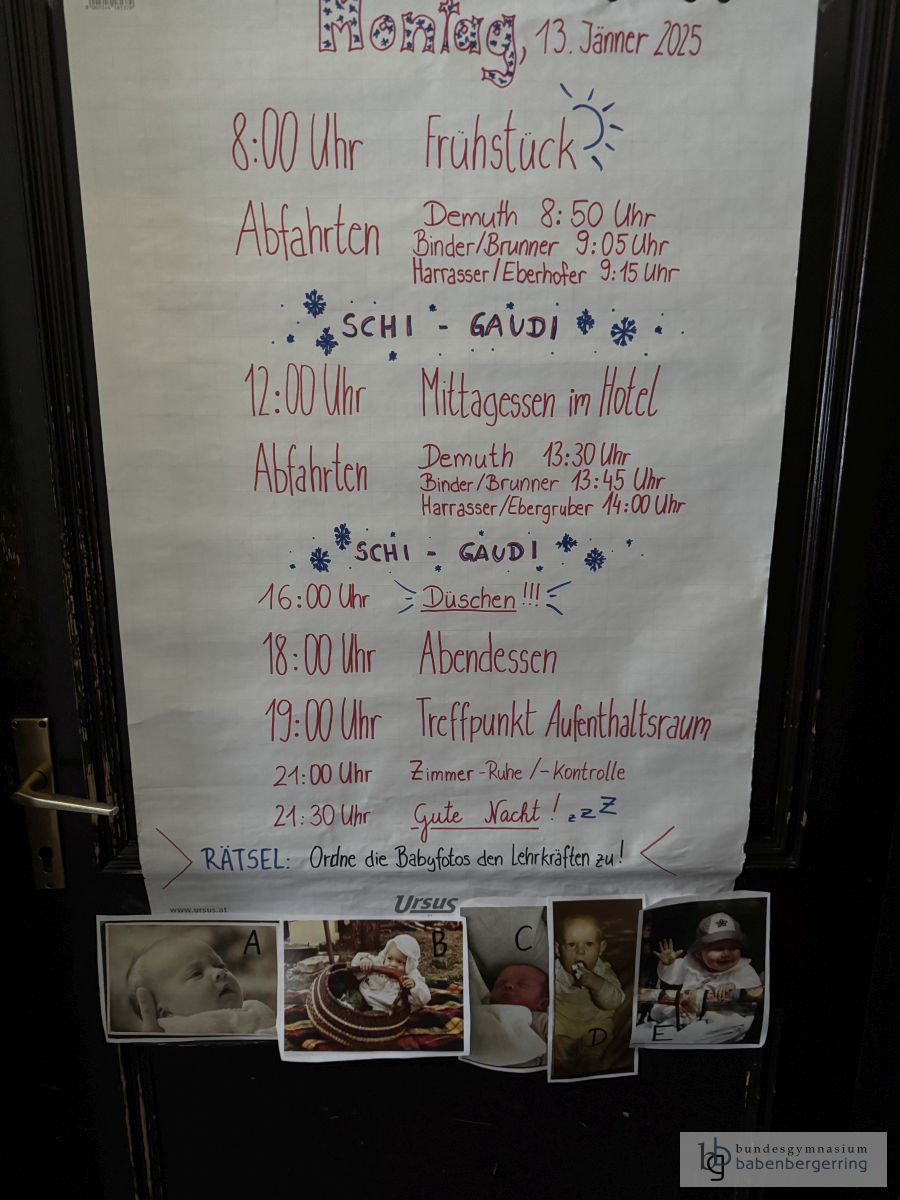 Montag, 13. Jänner 2025
8:00 Uhr Frühstück
Abfahrten Demuth 8:50 Uhr
Binder/Brunner 9:05 Uhr
Harrasser/Eberhofer 9:15 Uhr
SCHI - GAUDI
12:00 Uhr Mittagessen im Hotel
Abfahrten Demuth 13:30 Uhr
Binder/Brunner 13:45 Uhr
Harrasser/Ebergruber 14:00 Uhr
SCHI - GAUDI
16:00 Uhr Düschen!!!
18:00 Uhr Abendessen
19:00 Uhr Treffpunkt Aufenthaltsraum
21:00 Uhr Zimmer-Ruhe/-Kontrolle
21:30 Uhr Gute Nacht! zzZ
RÄTSEL: Ordne die Babyfotos den Lehrkräften zu!
www.ursus.at Ursus
A B C D E
bbg bundesgymnasium
babenbergerring